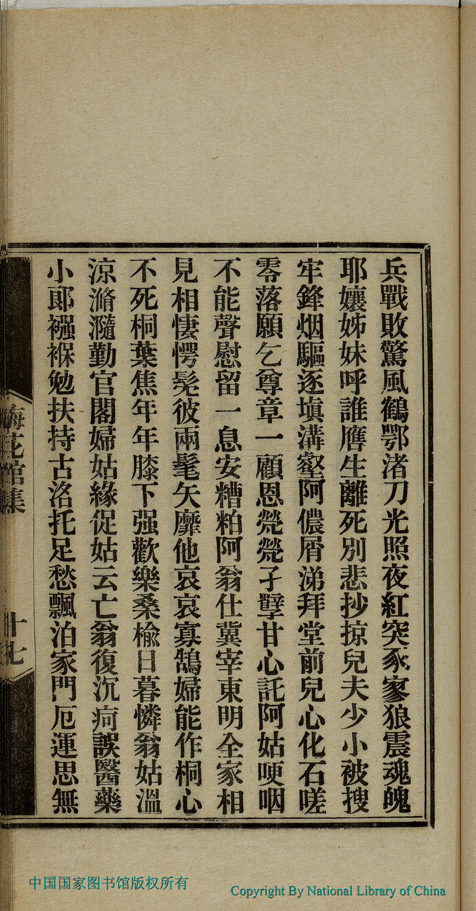 兵戰敗驚風鶴鄂渚刀光照夜紅突豕寥狼震魂魄
耶孃姊妹呼誰譍生離死別悲抄掠兒夫少小被搜
牢鋒烟驅逐塡溝壑阿儂屑涕拜堂前兒心化石嗟
零落願乞尊章一顧恩煢煢孑孽甘心託阿姑哽咽
不能聲慰留一息安糟粕阿翁仕冀宰東明全家相
見相悽愕髧彼兩髦矢靡他哀哀寡鵠婦能作桐心
不死桐葉焦年年膝下强歡樂桑榆日暮憐翁姑溫
凉滫瀡勤官閣婦姑緣促姑云亡翁復沉疴誤醫藥
小郞襁褓勉扶持古洺托足愁飄泊家門厄運思無
梅花館集
十七
中国国家图书馆版权所有
Copyright By National Library of China